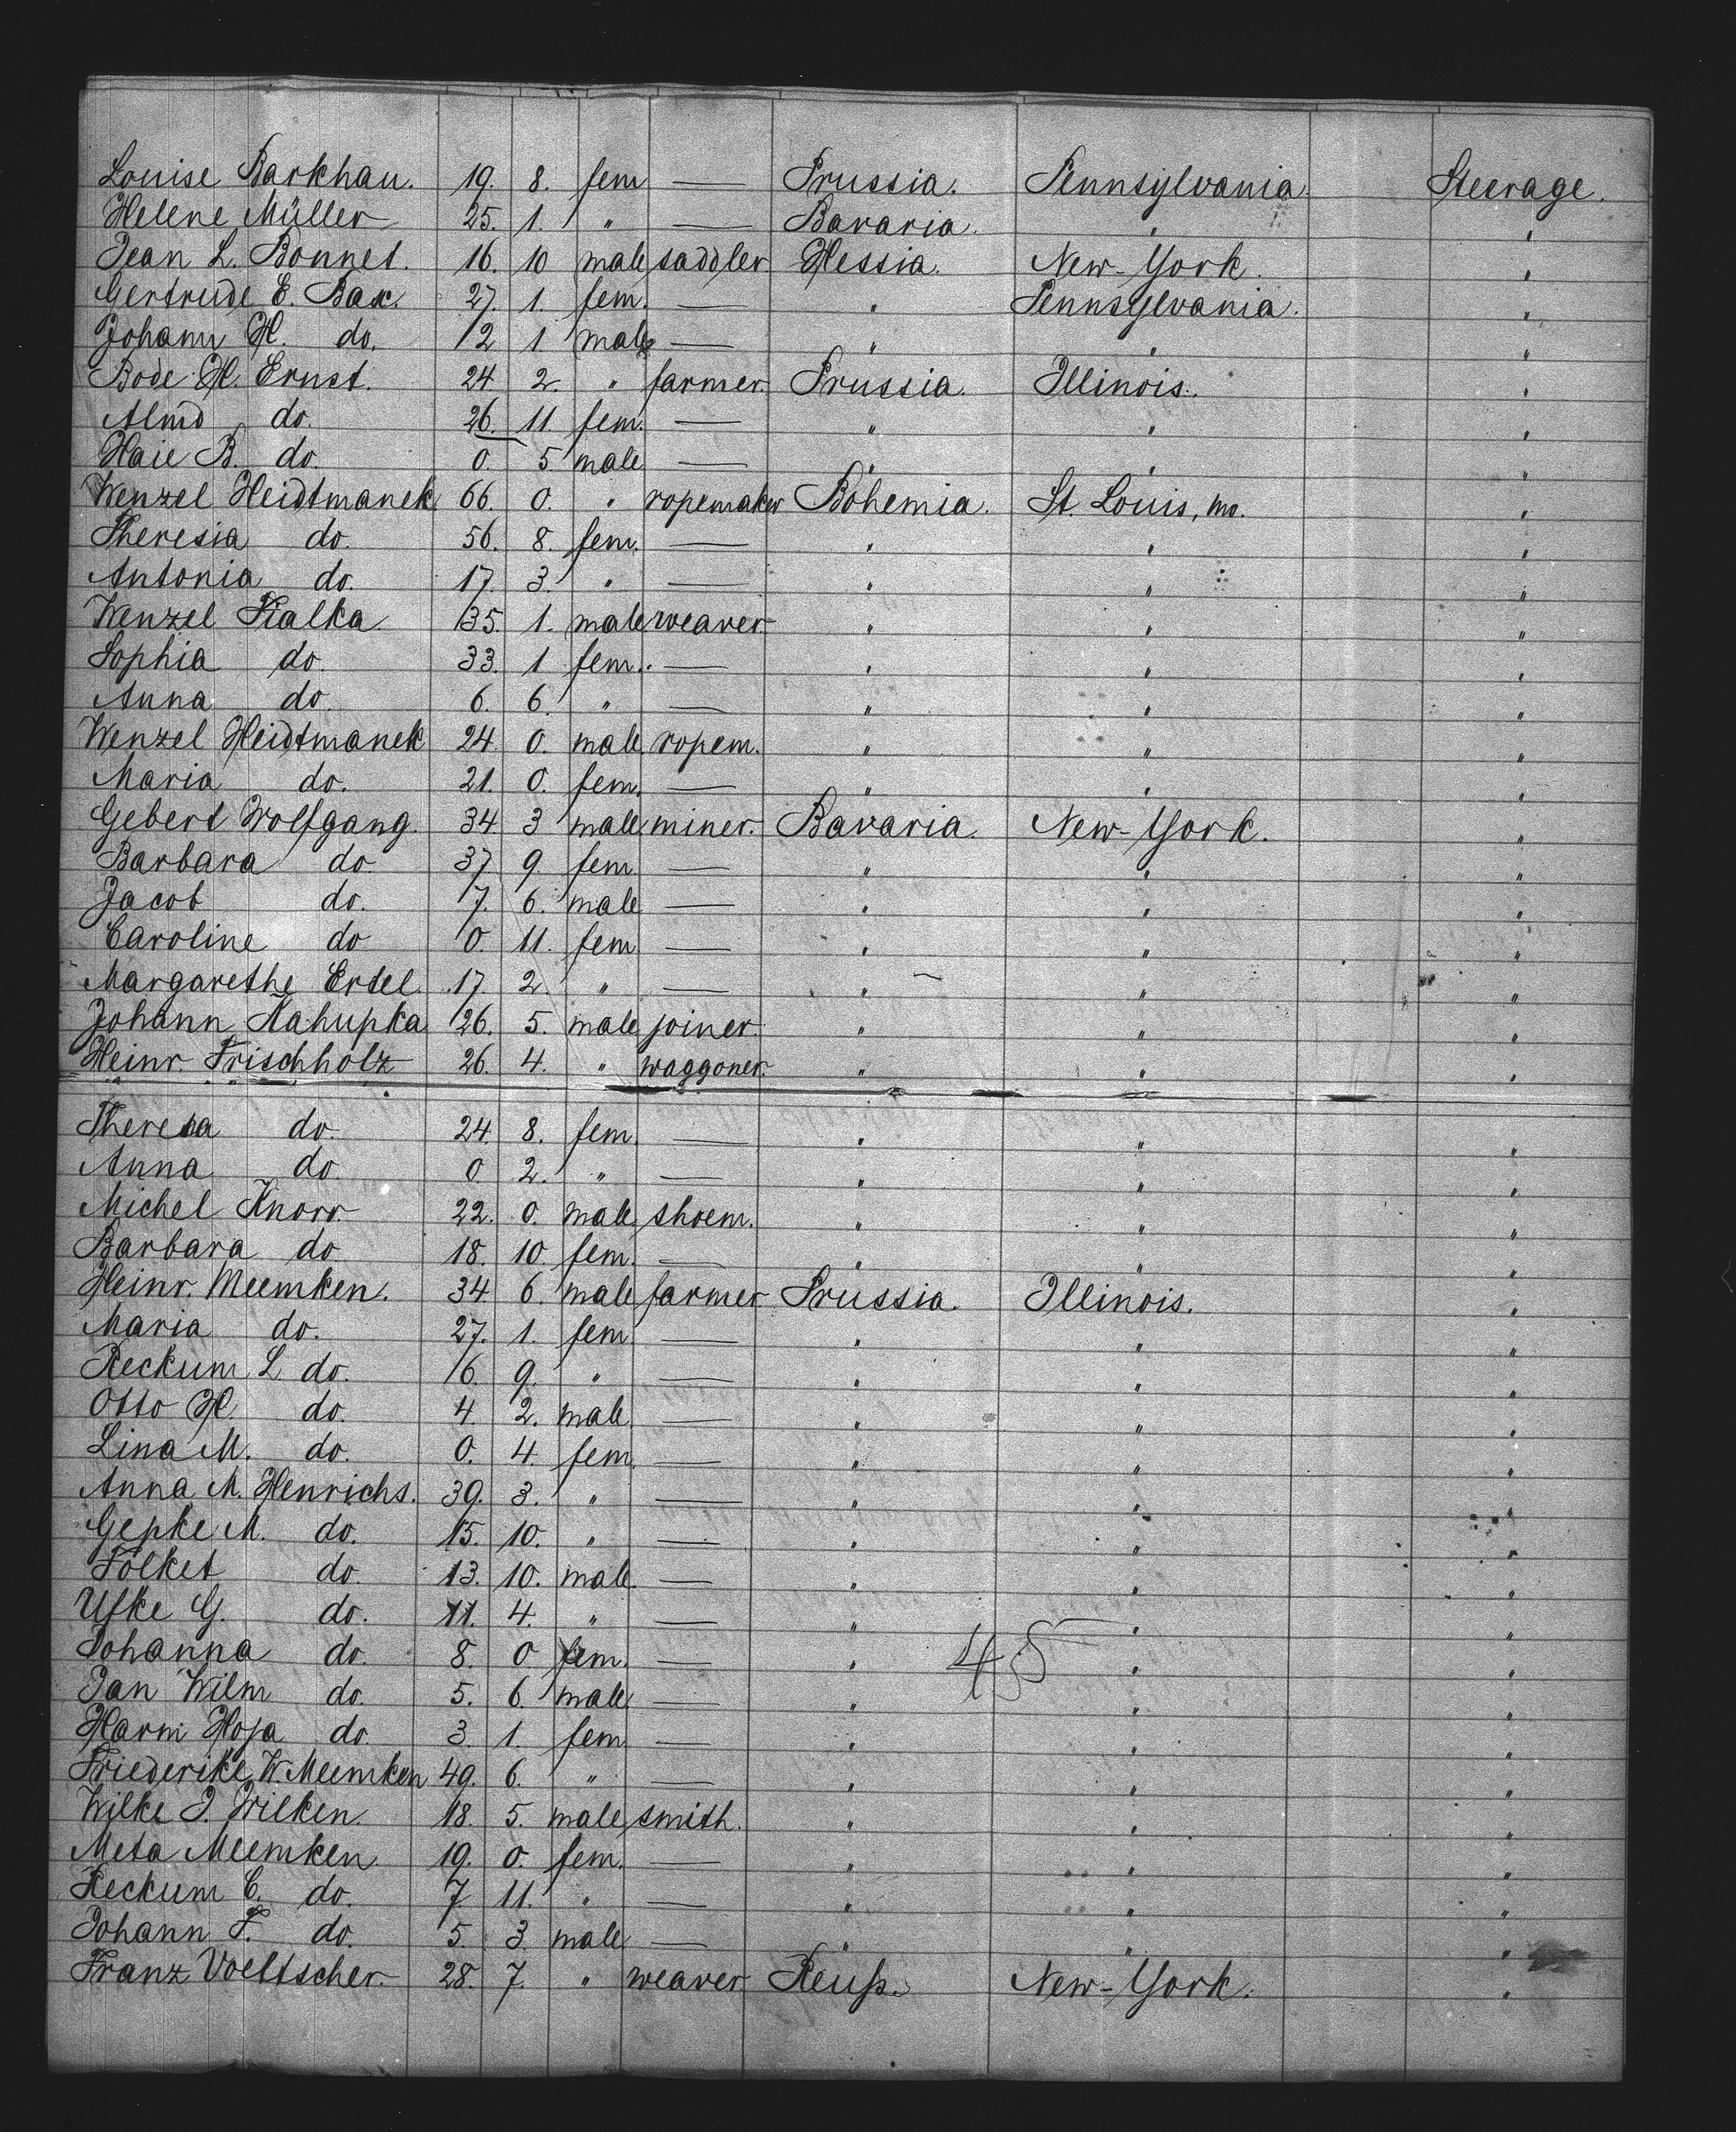 Louise Barkhau. 19. 8. fem — Prussia. Pennsylvania. Steerage.
Helene Müller 25. 1. " — Bavaria. " "
Jean L. Bonnet. 16. 10 male saddler Hessia. New-York. "
Gertrude E. Bax. 27. 1. fem. — " Pennsylvania. "
Johann H. do. 12 1 male — " " "
Bode H. Ernst. 24 2. " farmer. Prussia. Illinois. "
do. 26. 11. fem. — " " "
Haie B. do. 0. 5 male — " " "
Wenzel Heidtmanek 66. 0. " ropemaker Bohemia. St. Louis, Mo. "
Theresia do. 56. 8. fem. — " " "
Antonia do. 17. 3. " — " " "
Wenzel Fialka. 35. 1. male weaver. " " "
Sophia do. 33. 1 fem. — " " "
Anna do. 6. 6. " — " " "
Wenzel Heidtmanek 24. 0. male ropem. " " "
Maria do. 21. 0. fem. — " " "
Gebert Wolfgang. 34. 3 male miner. Bavaria New-York. "
Barbara do. 37. 9. fem — " " "
Jacob do. 7. 6. male — " " "
Caroline do 0. 11. fem — " " "
Margarethe Ertel. 17. 2. " — " " "
Johann Kahupka 26. 5. male joiner. " " "
Heinr. Frischholz 26. 4. " waggoner. " " "
Theresa do. 24. 8. fem — " " "
Anna do 0. 2. " — " " "
Michel Knorr. 22. 0. male shoem. " " "
Barbara do 18. 10 fem. — " " "
Heinr. Meemken. 34. 6. male farmer Prussia. Illinois. "
Maria do. 27. 1. fem. — " " "
Reckum L. do. 6. 9. " — " " "
Otto H. do. 4. 2. male — " " "
Lina M. do. 0. 4. fem. — " " "
Anna M. Henrichs. 39. 3. " — " " "
Gepke M. do. 15. 10. " — " " "
Folket do. 13. 10. male. — " " "
Ufke G. do. 11. 4. " — " " "
Johanna do. 8. 0 fem. — " 45 " "
Jan Wilm do. 5. 6. male — " " "
Harm Hoja do. 3. 1. fem — " " "
Friederike W. Meemken 49. 6. " — " " "
Wilke J. Wilken. 18. 5. male smith. " " "
Meta Meemken 19. 0. fem. — " " "
Reckum C. do. 7. 11. " — " " "
Johann F. do. 5. 3. male — " " "
Franz Voeltscher. 28. 7. " weaver Reuß. New-York. "